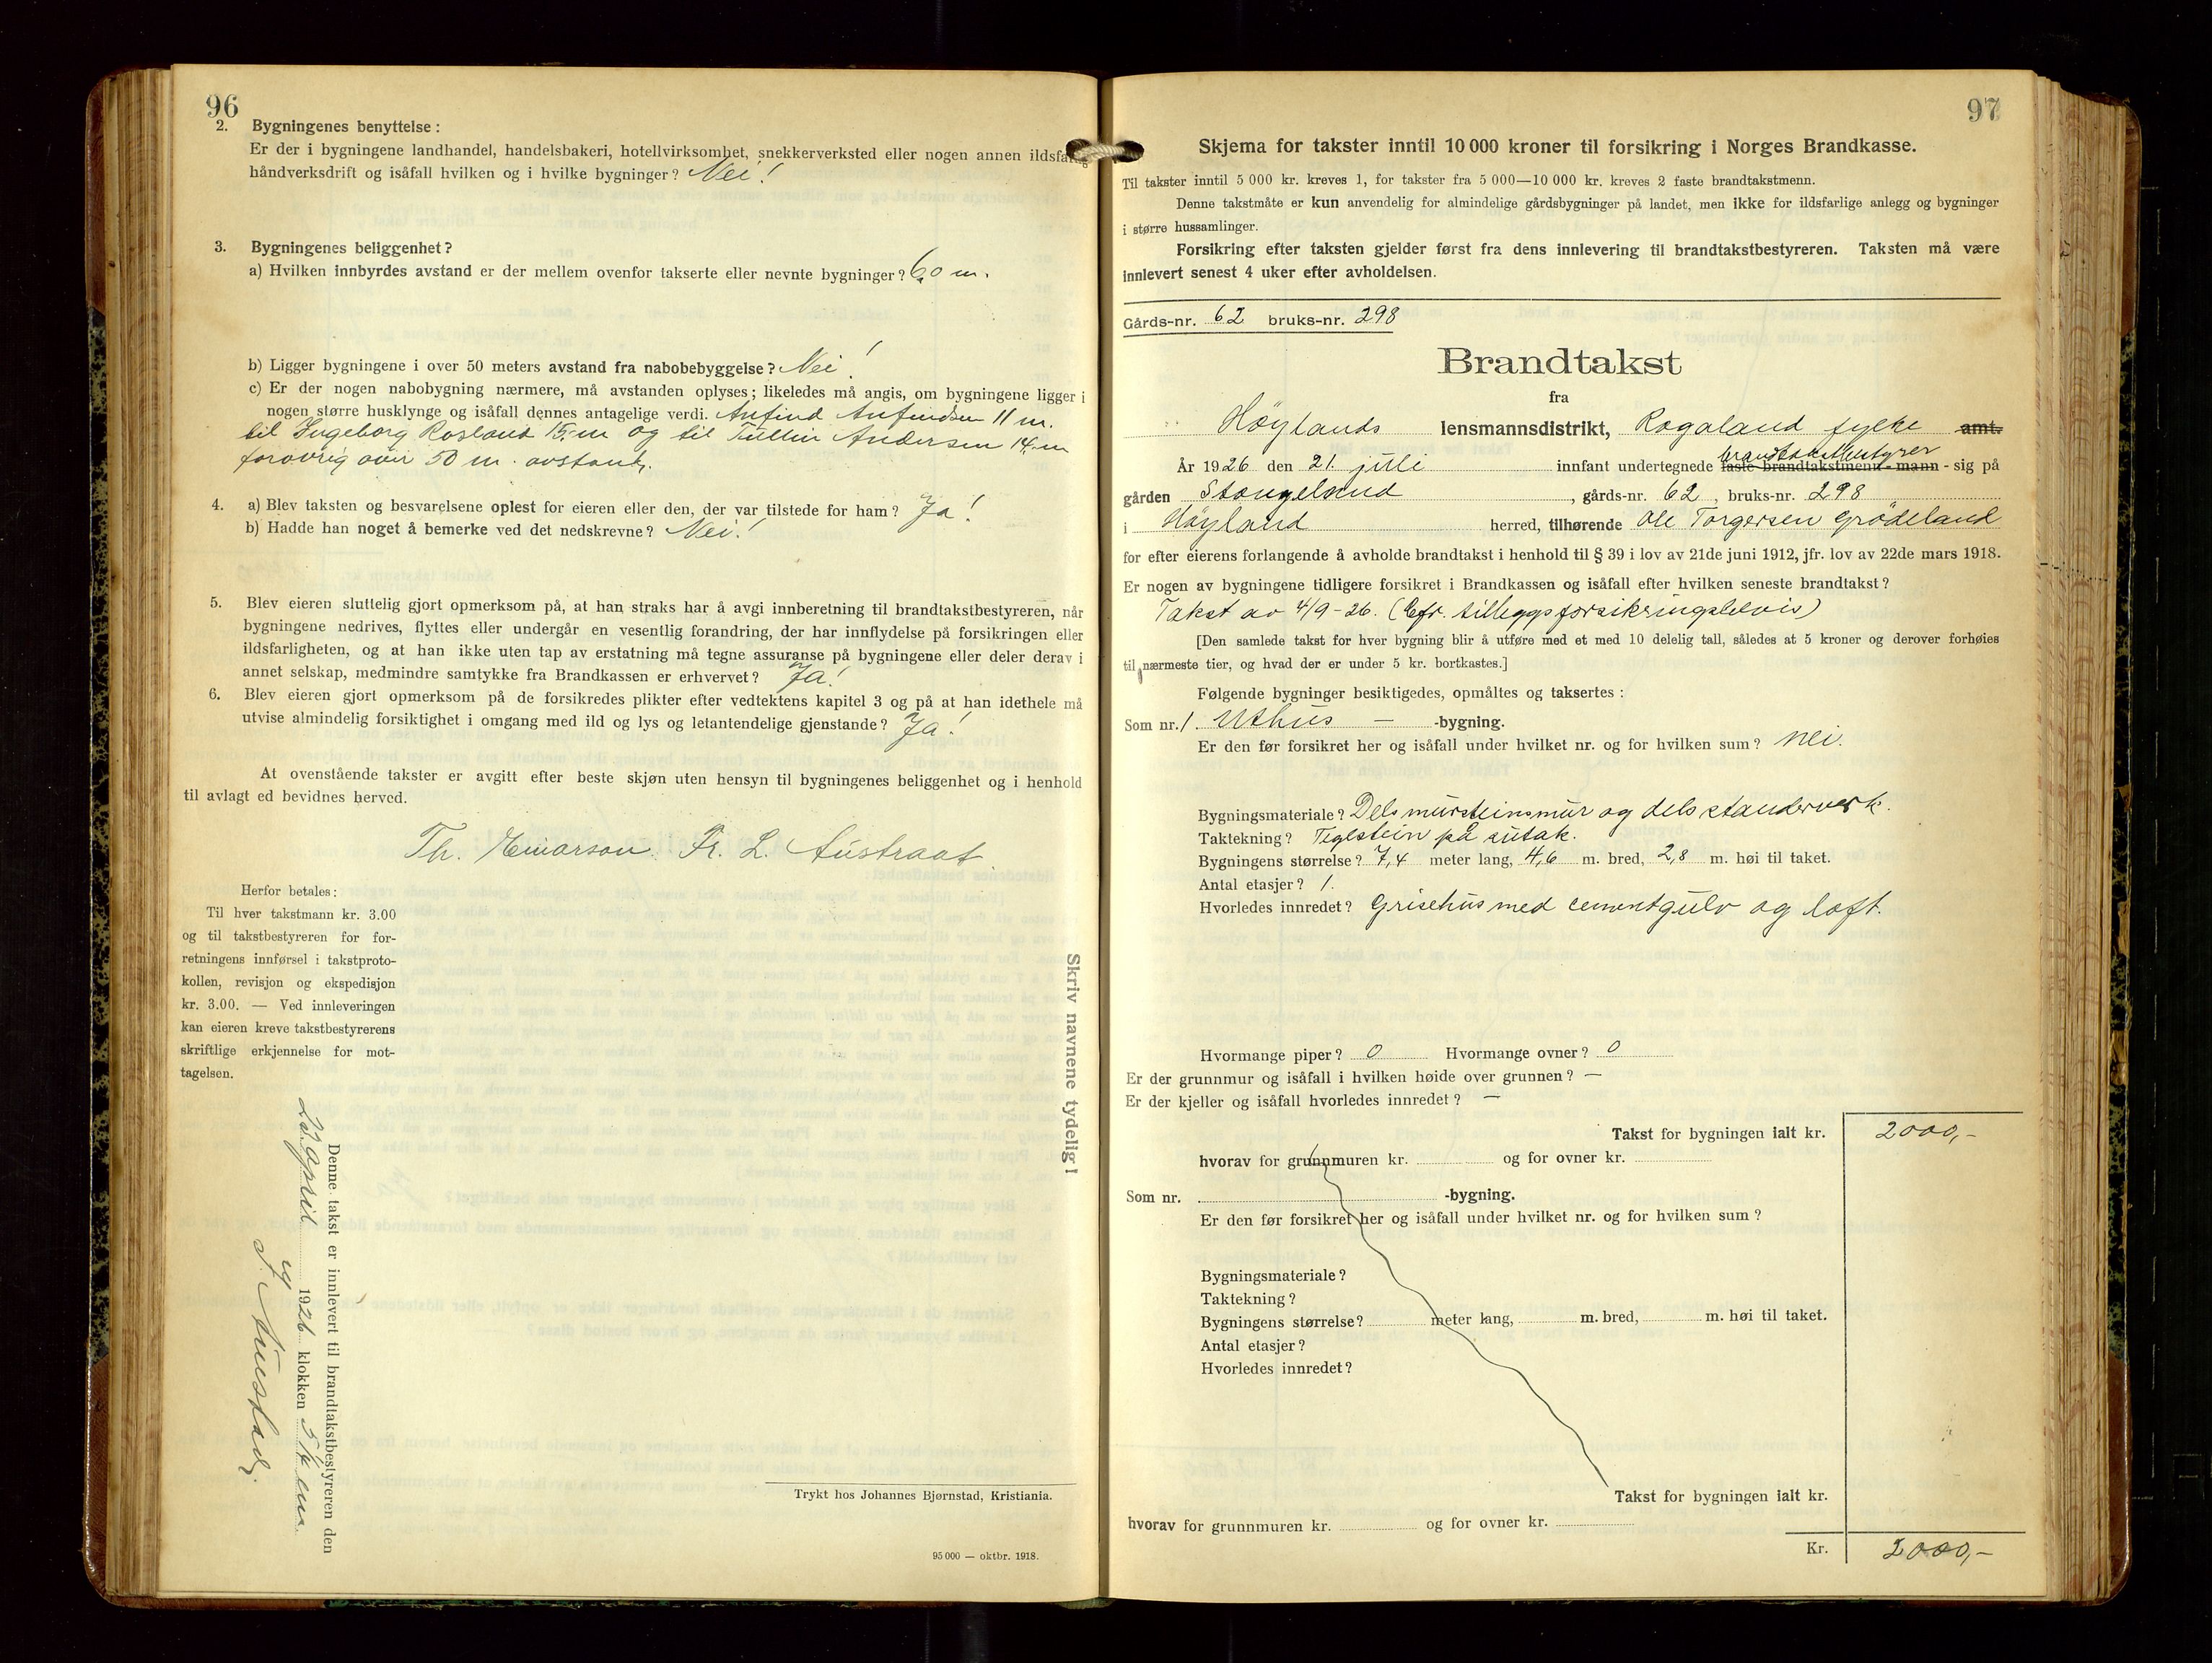 96
2. Bygningenes benyttelse:
Er der i bygningene landhandel, handelsbakeri, hotellvirksomhet, snekkerverksted eller nogen annen ildsfarlig
håndverksdrift og isåfall hvilken og i hvilke bygninger? Nei!
3. Bygningenes beliggenhet?
a) Hvilken innbyrdes avstand er der mellem ovenfor takserte eller nevnte bygninger? 6,0 m.
b) Ligger bygningene i over 50 meters avstand fra nabobebyggelse? Nei!
c) Er der nogen nabobygning nærmere, må avstanden oplyses; likeledes må angis, om bygningene ligger i
nogen større husklynge og isåfall dennes antagelige verdi. Anfind Anfindsen 11 m.
til Ingeborg Rosland 15 m og til Tullin Andersen 14 m
forøvrig over 50 m. avstand.
4. a) Blev taksten og besvarelsene oplest for eieren eller den, der var tilstede for ham? Ja!
b) Hadde han noget å bemerke ved det nedskrevne? Nei!
5. Blev eieren sluttelig gjort opmerksom på, at han straks har å avgi innberetning til brandtakstbestyreren, når
bygningene nedrives, flyttes eller undergår en vesentlig forandring, der har innflydelse på forsikringen eller
ildsfarligheten, og at han ikke uten tap av erstatning må tegne assuranse på bygningene eller deler derav i
annet selskap, medmindre samtykke fra Brandkassen er erhvervet? Ja!
6. Blev eieren gjort opmerksom på de forsikredes plikter efter vedtektens kapitel 3 og på at han idethele må
utvise almindelig forsiktighet i omgang med ild og lys og letantendelige gjenstande? Ja!
At ovenstående takster er avgitt efter beste skjøn uten hensyn til bygningenes beliggenhet og i henhold
til avlagt ed bevidnes herved.
Th. Einarson. Fr. L. Austraat.
Herfor betales:
Til hver takstmann kr. 3.00
og til takstbestyreren for for-
retningens innførsel i takstproto-
kollen, revisjon og ekspedisjon
kr. 3.00. — Ved innleveringen
kan eieren kreve takstbestyrerens
skriftlige erkjennelse for mot-
tagelsen.
Skriv navnene tydelig!
Denne takst er innlevert til brandtakstbestyreren den
april 1926 klokken 5
Trykt hos Johannes Bjørnstad, Kristiania.
95 000 — oktbr. 1918.
97
Skjema for takster inntil 10 000 kroner til forsikring i Norges Brandkasse.
Til takster inntil 5 000 kr. kreves 1, for takster fra 5 000—10 000 kr. kreves 2 faste brandtakstmenn.
Denne takstmåte er kun anvendelig for almindelige gårdsbygninger på landet, men ikke for ildsfarlige anlegg og bygninger
i større hussamlinger.
Forsikring efter taksten gjelder først fra dens innlevering til brandtakstbestyreren. Taksten må være
innlevert senest 4 uker efter avholdelsen.
Gårds-nr. 62 bruks-nr. 298
Brandtakst
fra
Høylands lensmannsdistrikt, Rogaland fylke amt.
brandtakstbestyrer
År 1926 den 21. juli innfant undertegnede faste brandtakstmenn - mann - sig på
gården Stangeland, gårds-nr. 62, bruks-nr. 298
i Høyland herred, tilhørende Ole Torgersen Grödeland
for efter eierens forlangende å avholde brandtakst i henhold til § 39 i lov av 21de juni 1912, jfr. lov av 22de mars 1918.
Er nogen av bygningene tidligere forsikret i Brandkassen og isåfall efter hvilken seneste brandtakst?
Takst av 4/9-26. (Cfr. tilleggsforsikringsbevis)
[Den samlede takst for hver bygning blir å utføre med et med 10 delelig tall, således at 5 kroner og derover forhøies
til nærmeste tier, og hvad der er under 5 kr. bortkastes.]
Følgende bygninger besiktigedes, opmåltes og taksertes:
Som nr. 1 Uthus — -bygning.
Er den før forsikret her og isåfall under hvilket nr. og for hvilken sum? nei.
Bygningsmateriale? Dels mursteinsmur og dels standerverk.
Taktekning? Teglstein på sutak.
Bygningens størrelse? 7,4 meter lang, 4,6 m. bred, 2,8 m. høi til taket.
Antal etasjer? 1.
Hvorledes innredet? Grisehus med cementgulv og loft.
Hvormange piper? 0 Hvormange ovner? 0
Er der grunnmur og isåfall i hvilken høide over grunnen? —
Er der kjeller og isåfall hvorledes innredet? —
Takst for bygningen ialt kr. 2000,-
hvorav for grunnmuren kr. og for ovner kr.
Som nr. -bygning.
Er den før forsikret her og isåfall under hvilket nr. og for hvilken sum?
Bygningsmateriale?
Taktekning?
Bygningens størrelse? meter lang, m. bred, m. høi til taket.
Antal etasjer?
Hvorledes innredet?
Takst for bygningen ialt kr.
hvorav for grunnmuren kr. og for ovner kr.
Kr. 2000,-